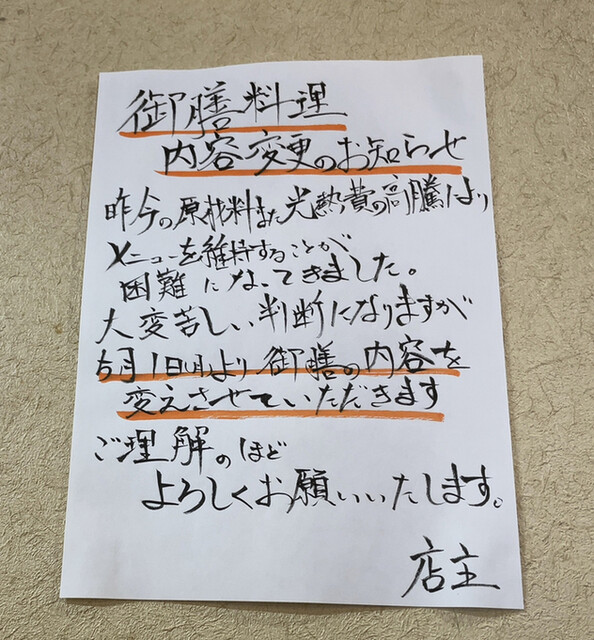 御膳料理
内容変更のお知らせ
昨今の原材料また光熱費の高騰により
メニューを維持することが
困難になってきました。
大変苦しい判断になりますが
5月1日(月)より御膳の内容を
変えさせていただきます
ご理解のほど
よろしくお願いいたします。
店主